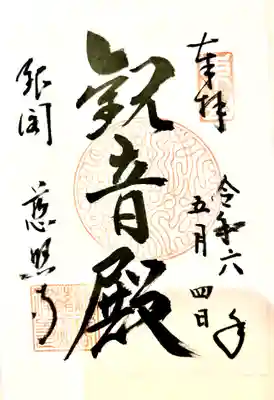 奉拝
令和六年
五月四日
観音殿
銀閣
慈照寺